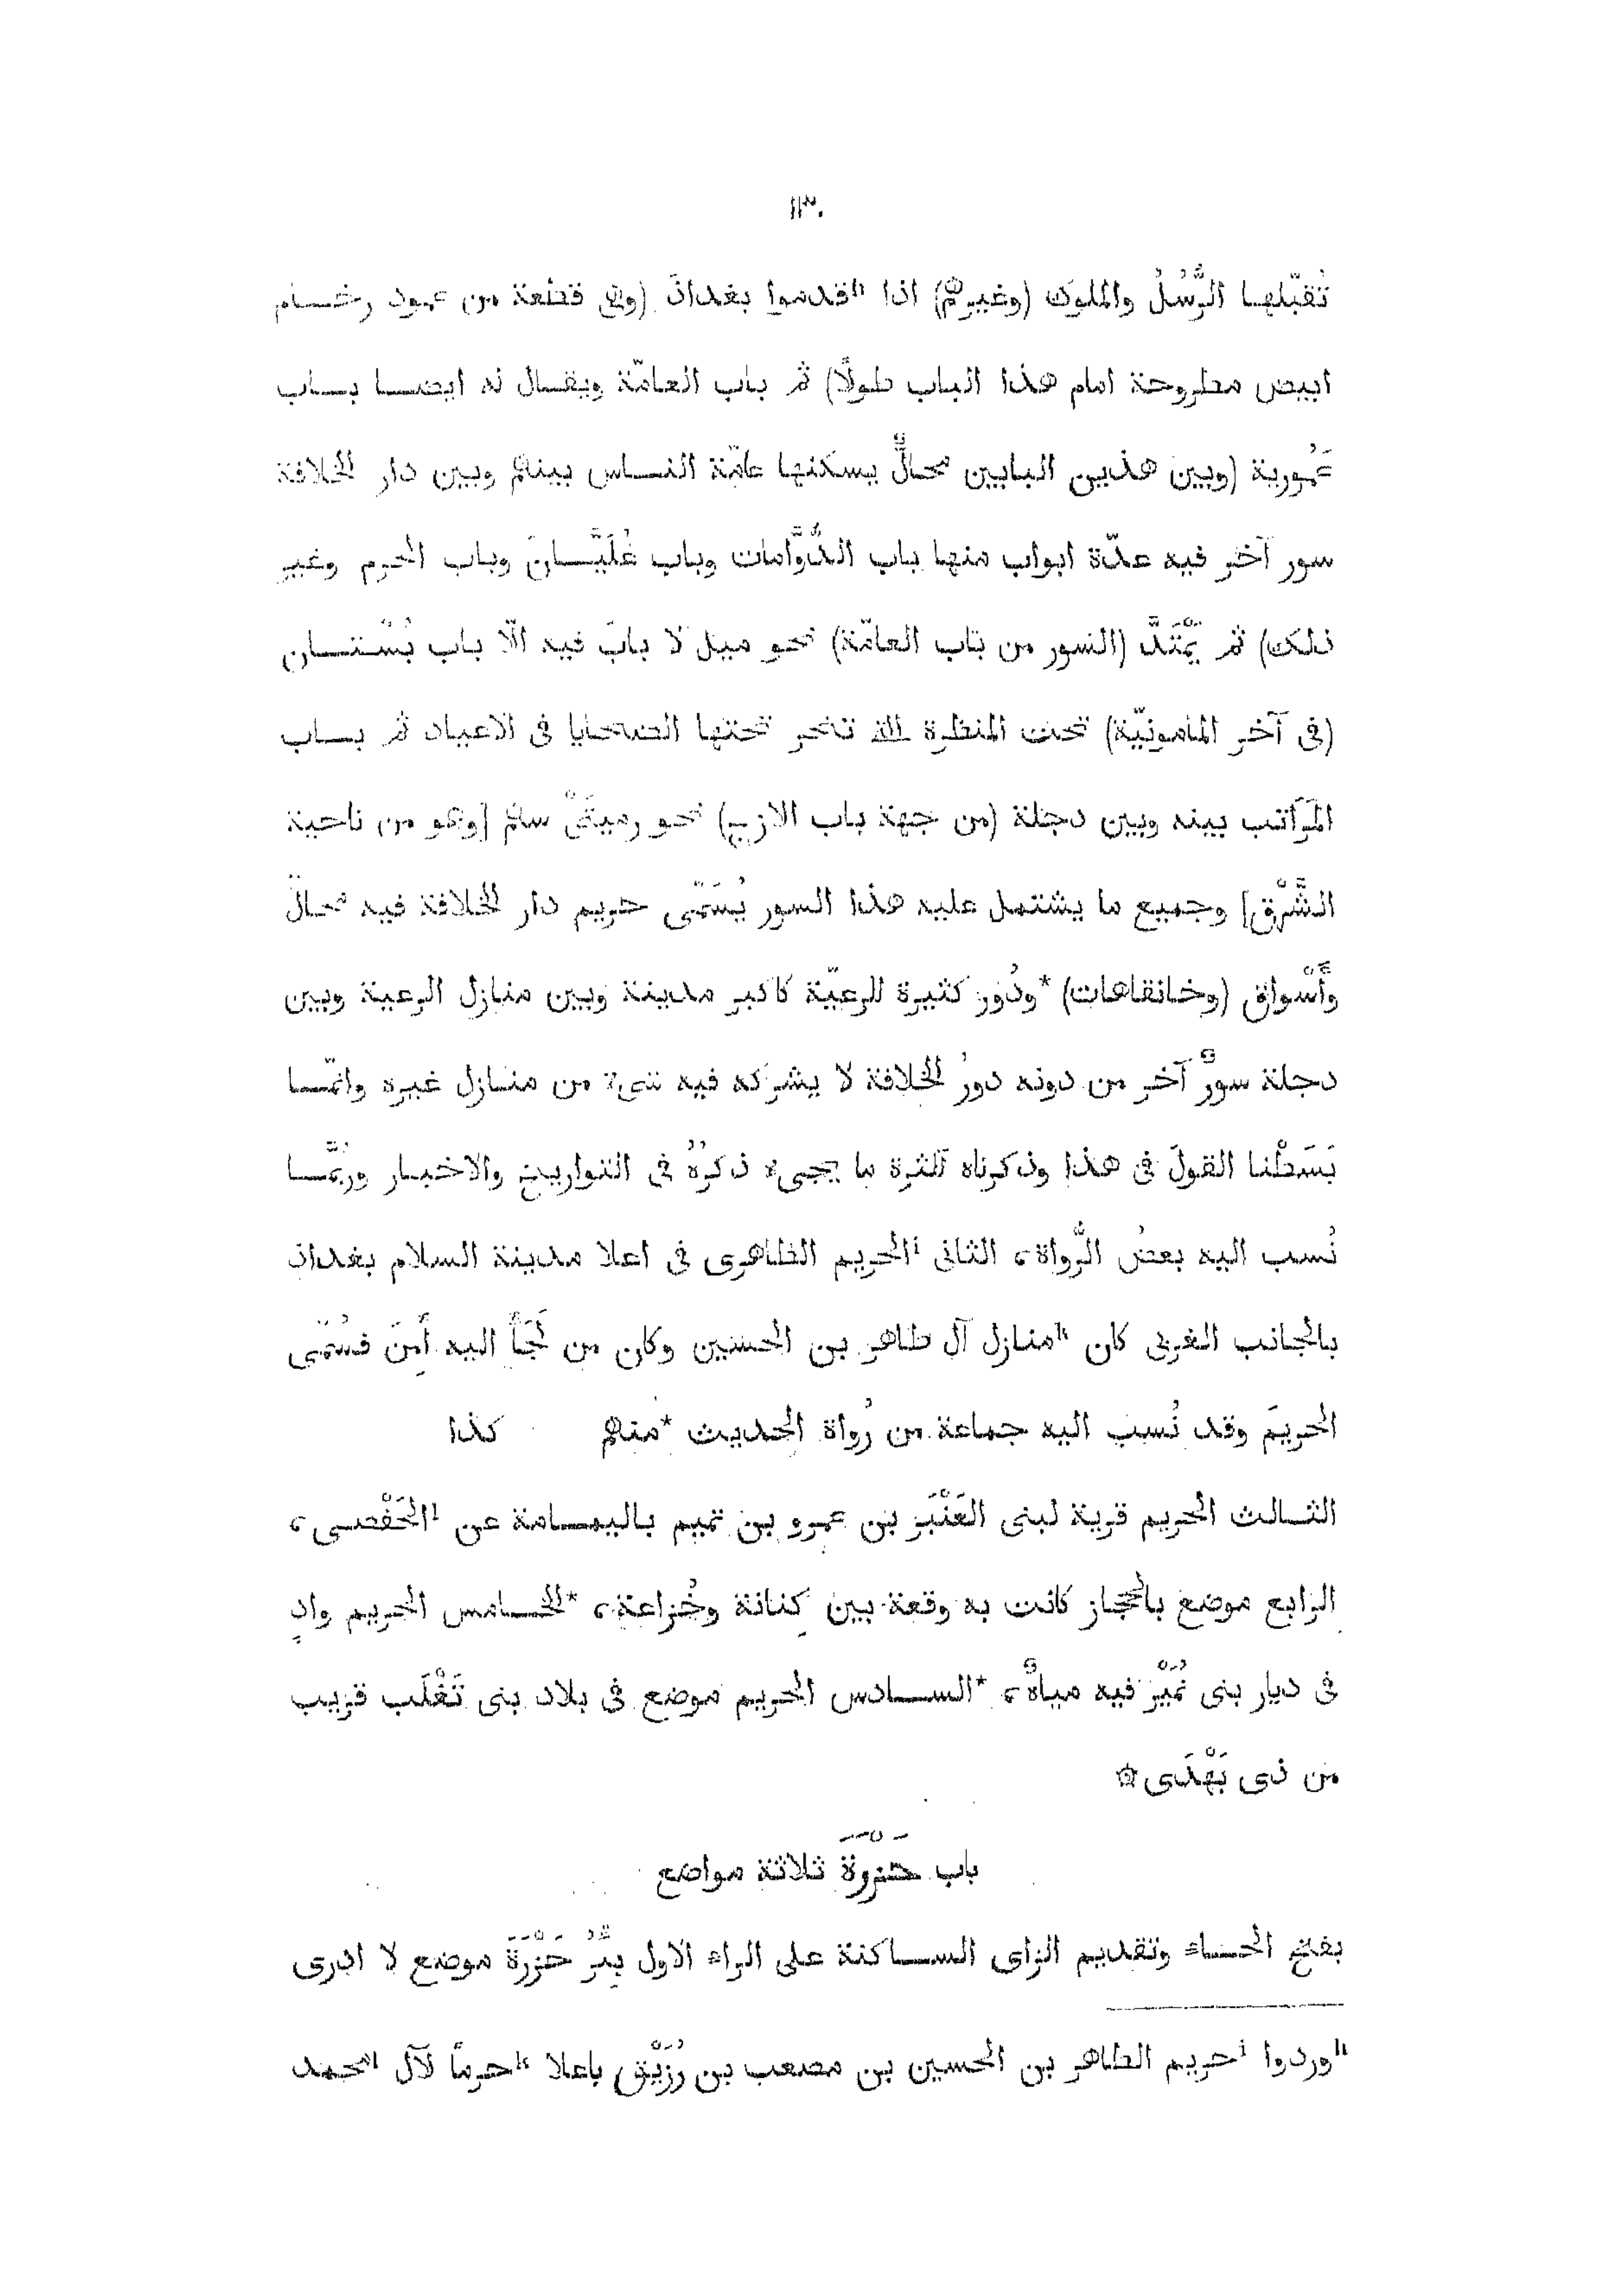 ١٣٠
تُقبّلها الرُّسُلُ والملوك (وغيرهم) اذا "قدموا بغداذ (وهى قطعة من عمود رخــام
ابيض مطروحة امام هذا الباب طولًا) ثم باب العامّة ويقــال له ايضــا بــاب
عَمُّورية (وبين هذين البابين محالٌّ يسكنها عامّة النــاس بينهم وبين دار الخلافة
سور آخر فيه عدّة ابواب منها باب الدَّوَّامات وباب عُلَيَّــانَ وباب الحرم وغير
ذلك) ثم يمْتَدُّ (السور من باب العامّة) نحو ميل لا بابَ فيه الّا باب بُسْتــان
(فى آخر المامونيّة) تحت المنظرة للة تنحر تحتها الضحايا فى الاعياد ثم بــاب
المَرَاتب بينه وبين دجلة (من جهة باب الازج) نحو رميتَىْ سهم [وهو من ناحية
الشَّرْق] وجميع ما يشتمل عليه هذا السور يُسَمَّى حريم دار الخلافة فيه محالّ
وأَسْواق (وخانقاهات) *ودُور كثيرة للرعيّة كاكبر مدينة وبين منازل الرعية وبين
دجلة سورٌ آخر من دونه دورُ الخلافة لا يشركه فيه شىء من منــازل غيره وانمّــا
بَسَطْنا القولَ فى هذا وذكرناه لكثرة ما يجىء ذكرُهُ فى التواريخ والاخبــار ورُبَّمــا
نُسب اليه بعضُ الرُّواة، الثانى ¹الحريم الظاهرى فى اعلا مدينة السلام بغداذ
بالجانب الغربى كان "منازل آل طاهر بن الحسين وكان من لَجَأَ اليه أَمِنَ فسُمّى
الحريمَ وقد نُسب اليه جماعة من رُواة الحديث *منهم كذا
الثــالث الحريم قرية لبنى العَنْبَر بن عمرو بن تميم باليمــامة عن ¹الحَفْصــى،
الرابع موضع بالحجاز كانت به وقعة بين كِنانة وخُزاعة، *الخــامس الحريم وادٍ
فى ديار بنى نُمَيْر فيه مياهٌ، *الســادس الحريم موضع فى بلاد بنى تَغْلَب قريب
من ذى بَهْدَى۞
باب حَزْوَرَة ثلاثة مواضع
بفتح الحــاء وتقديم الزاى الســاكنة على الراء الاول بِئْرُ حَزْرَةَ موضع لا ادرى
"وردوا ¹حريم الطاهر بن الحسين بن مصعب بن رُزَيْق باعلا "حرمًا لآل "محمد